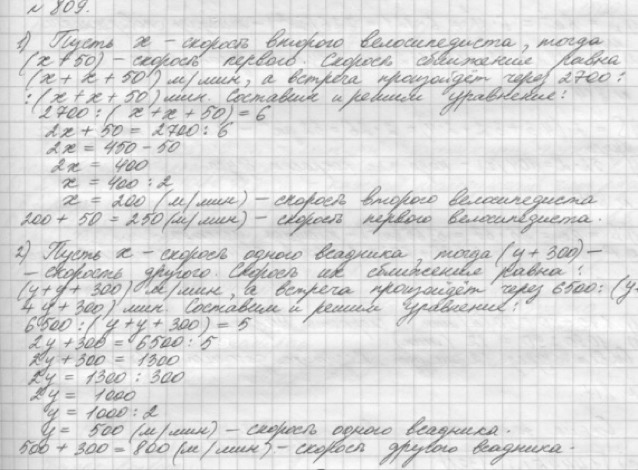 № 809.
1) Пусть x - скорость второго велосипедиста, тогда
(x + 50) - скорость первого. Скорость сближения равна
(x + x + 50) м/мин, а встреча произойдёт через 2700 :
: (x + x + 50) мин. Составим и решим уравнение:
2700 : (x + x + 50) = 6
2x + 50 = 2700 : 6
2x = 450 - 50
2x = 400
x = 400 : 2
x = 200 (м/мин) - скорость второго велосипедиста
200 + 50 = 250 (м/мин) - скорость первого велосипедиста.
2) Пусть x - скорость одного всадника, тогда (y + 300) -
- скорость другого. Скорость их сближения равна:
(y + y + 300) м/мин, а встреча произойдёт через 6500 : (y+
+ y + 300) мин. Составим и решим уравнение:
6500 : (y + y + 300) = 5
2y + 300 = 6500 : 5
2y + 300 = 1300
2y = 1300 : 300
2y = 1000
y = 1000 : 2
y = 500 (м/мин) - скорость одного всадника.
500 + 300 = 800 (м/мин) - скорость другого всадника.